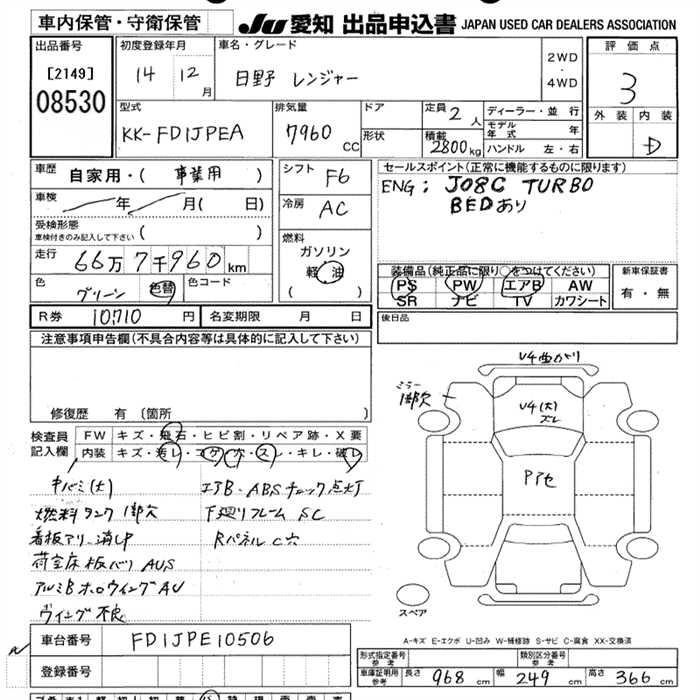 車内保管・守衛保管
JU 愛知 出品申込書 JAPAN USED CAR DEALERS ASSOCIATION
出品番号
[2149]
08530
初度登録年月
14 12 月
車名・グレード
日野 レンジャー
2WD
・
4WD
評価点
3
外装 内装
D
型式
KK-FD1JPEA
排気量
7960 CC
ドア
形状
定員 2 人
積載 2800 kg
ディーラー・並行
モデル年式 年
ハンドル 左・右
車歴
自家用・( 事業用 )
車検
年 月( 日)
受検形態
車検付きのみ記入して下さい ( )
走行
66万7千960 km
色
グリーン 色替
色コード
シフト F6
冷房 AC
燃料
ガソリン
軽油
( )
セールスポイント(正常に機能するものに限ります)
ENG: J08C TURBO
BEDあり
装備品(純正品に限り○をつけてください)
PS PW エアB AW
SR ナビ TV カワシート
新車保証書
有・無
R券 10,710 円
名変期限 月 日
後日品
注意事項申告欄(不具合内容等は具体的に記入して下さい)
修復歴 有 (箇所 )
検査員記入欄
FW キズ・飛石・ヒビ割・リペア跡・X要
内装 キズ・汚レ・コゲ・穴・スレ・キレ・破レ
キバミ(大)
燃料タンク 1部欠
看板アリ、消し
荷室床板バリ AUS
アルミBホロウイングAU
ウイング不良
エアB・ABSチェック点灯
下廻りフレーム SC
RパネルC穴
V4曲がり
ミラー
1部欠
V4(大)
ズレ
Pアセ
スペア
A-キズ E-エクボ U-凹み W-補修跡 S-サビ C-腐食 XX-交換済
車台番号 FD1JPE10506
登録番号
形式指定番号
参考
類別区分番号
参考
車庫証明用
参考
長さ 968 cm 幅 249 cm 高さ 366 cm